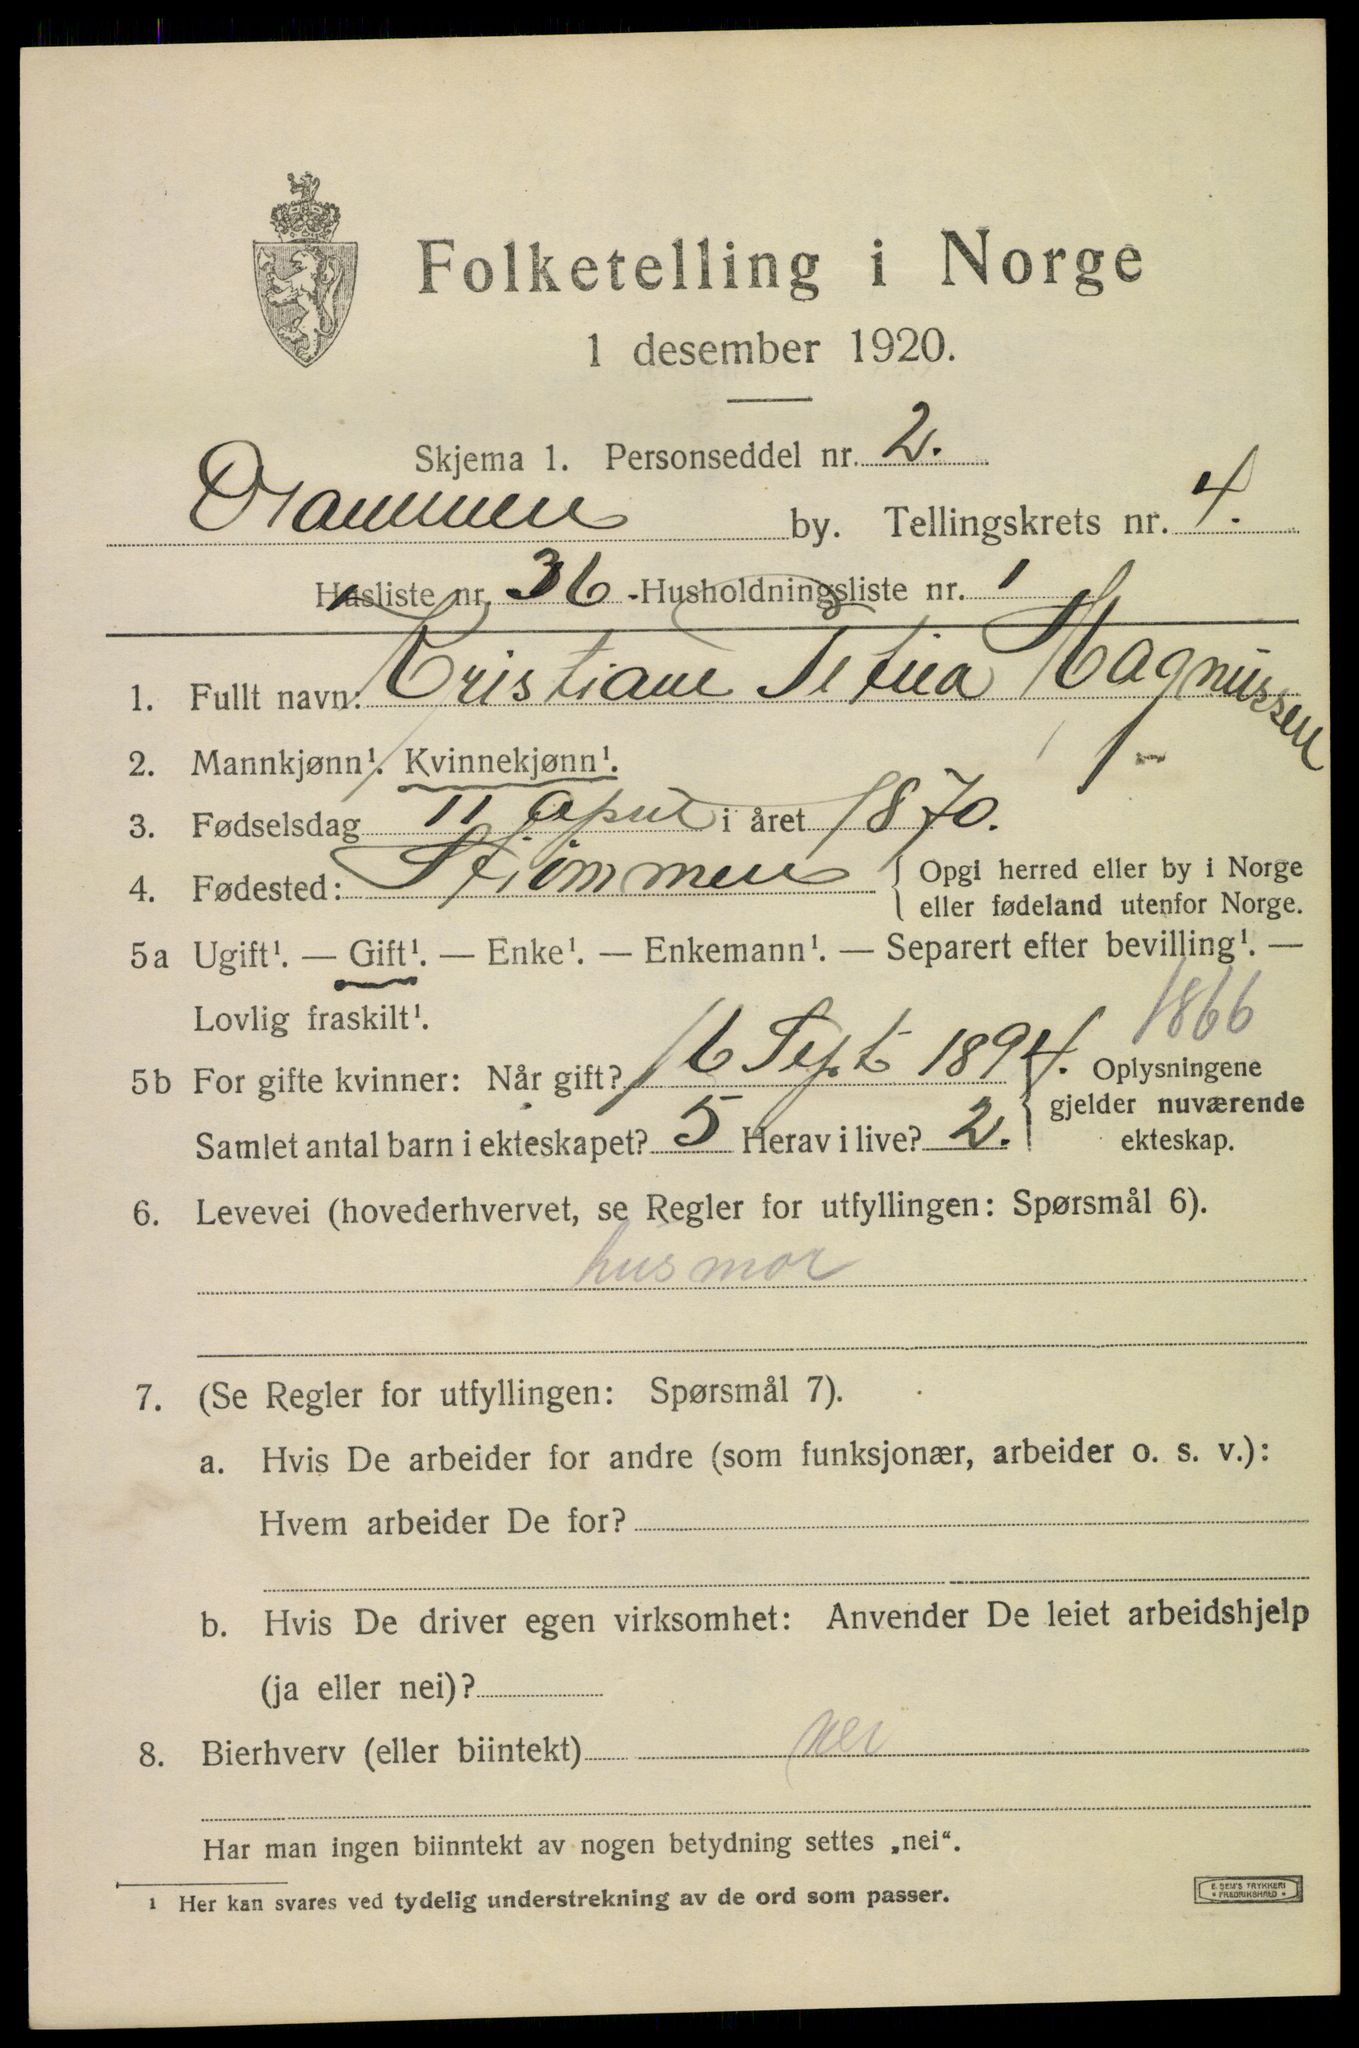 Folketelling i Norge
1 desember 1920.
Skjema 1. Personseddel nr. 2.
Drammen by. Tellingskrets nr. 4.
Husliste nr. 36 Husholdningsliste nr. 1
1. Fullt navn: Kristiane Magnussen
2. Mannkjønn¹. Kvinnekjønn¹.
3. Fødselsdag 11 April i året 1870.
4. Fødested: Strömmen { Opgi herred eller by i Norge
eller fødeland utenfor Norge.
5a Ugift¹. — Gift¹. — Enke¹. — Enkemann¹. — Separert efter bevilling¹. —
Lovlig fraskilt¹.
1866
5b For gifte kvinner: Når gift? 16 Sept 1894. { Oplysningene
gjelder nuværende
Samlet antal barn i ekteskapet? 5 Herav i live? 2. ekteskap.
6. Levevei (hovederhvervet, se Regler for utfyllingen: Spørsmål 6).
husmor
7. (Se Regler for utfyllingen: Spørsmål 7).
a. Hvis De arbeider for andre (som funksjonær, arbeider o. s. v.):
Hvem arbeider De for?
b. Hvis De driver egen virksomhet: Anvender De leiet arbeidshjelp
(ja eller nei)?
8. Bierhverv (eller biintekt) nei
Har man ingen biinntekt av nogen betydning settes „nei“.
1 Her kan svares ved tydelig understrekning av de ord som passer.
E. SEM'S TRYKKERI
* FREDRIKSHALD *